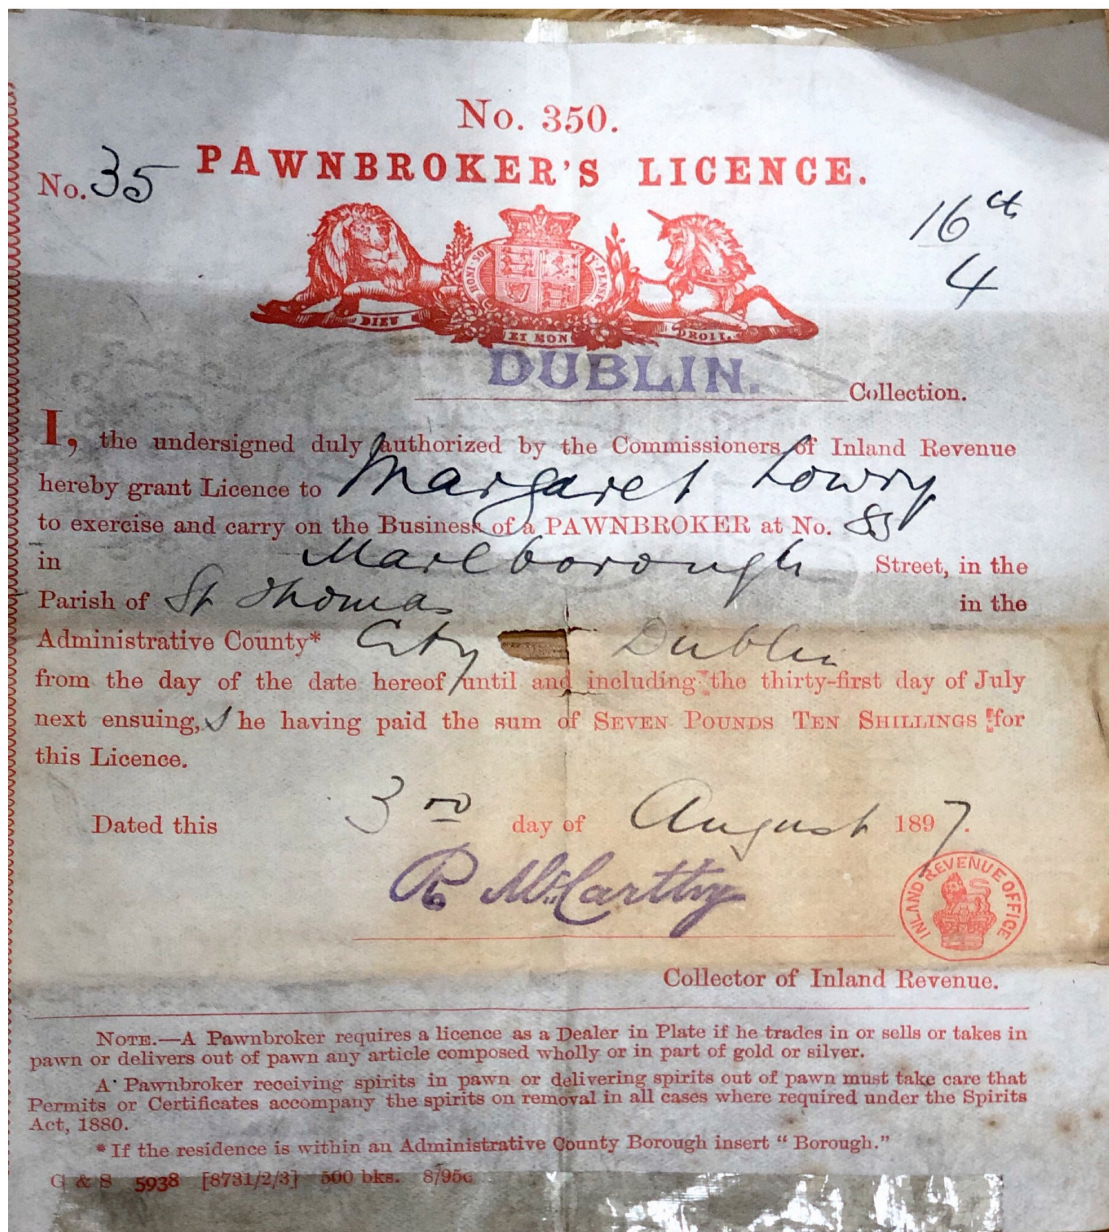 No. 350.
PAWNBROKER'S LICENCE.
No. 35
16 ct
4
HONI SO Y PENSE
DIEU ET MON DROIT.
DUBLIN.
Collection.
I, the undersigned duly authorized by the Commissioners of Inland Revenue
hereby grant Licence to Margaret Lowry
to exercise and carry on the Business of a PAWNBROKER at No. 85
in Marlborough Street, in the
Parish of St Thomas in the
Administrative County* City Dublin
from the day of the date hereof until and including the thirty-first day of July
next ensuing, S he having paid the sum of SEVEN POUNDS TEN SHILLINGS for
this Licence.
Dated this 3rd day of August 1897.
R McCarthy
INLAND REVENUE OFFICE
Collector of Inland Revenue.
NOTE.—A Pawnbroker requires a licence as a Dealer in Plate if he trades in or sells or takes in
pawn or delivers out of pawn any article composed wholly or in part of gold or silver.
A Pawnbroker receiving spirits in pawn or delivering spirits out of pawn must take care that
Permits or Certificates accompany the spirits on removal in all cases where required under the Spirits
Act, 1880.
* If the residence is within an Administrative County Borough insert "Borough."
G & S 5938 [8731/2/3] 500 bks. 8/95